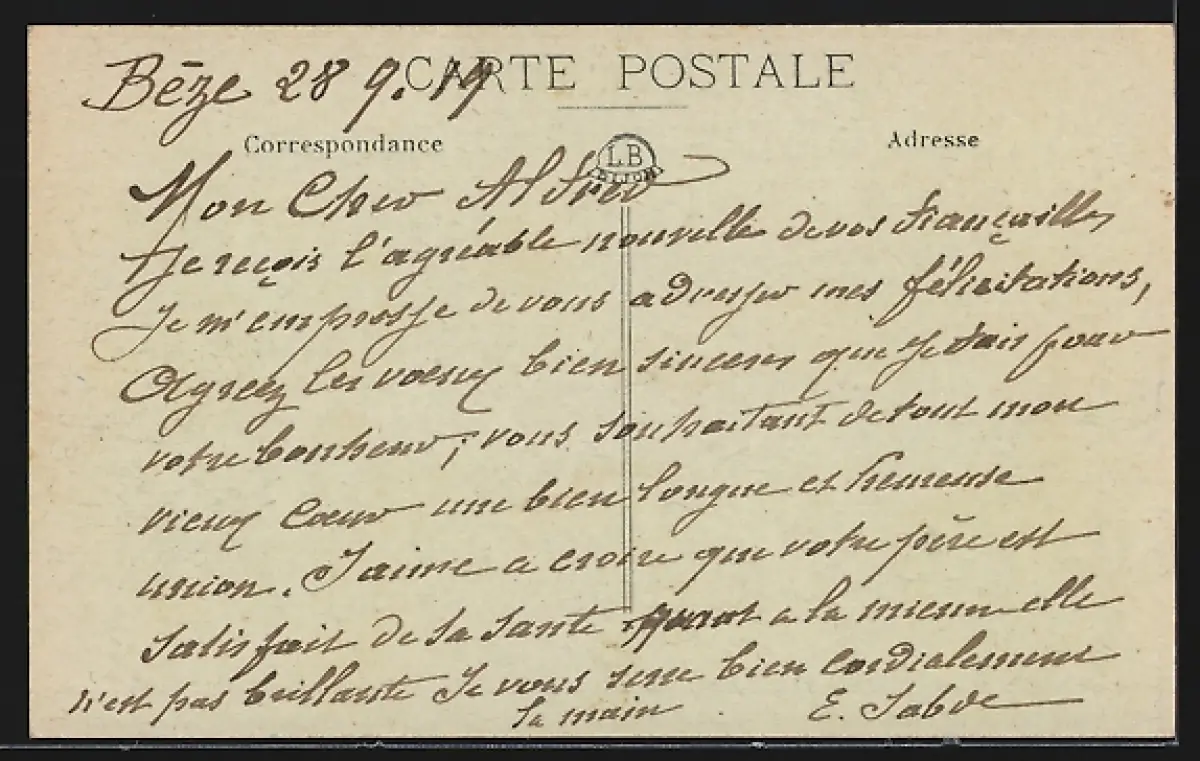 Bèze 28 9. 19
CARTE POSTALE
Correspondance
Adresse
LB
DIJON
Mon Cher Alfred
Je reçois l'agréable nouvelle de vos fiançailles,
Je m'empresse de vous adresser mes félicitations,
Agréez les vœux bien sinceres que je fais pour
votre bonheur, vous souhaitant de tout mon
vieux Cœur une bien longue et heureuse
union. J'aime a croire que votre père est
satisfait de sa sante quant a la mienne elle
n'est pas brillante Je vous serre bien cordialement
la main
E.